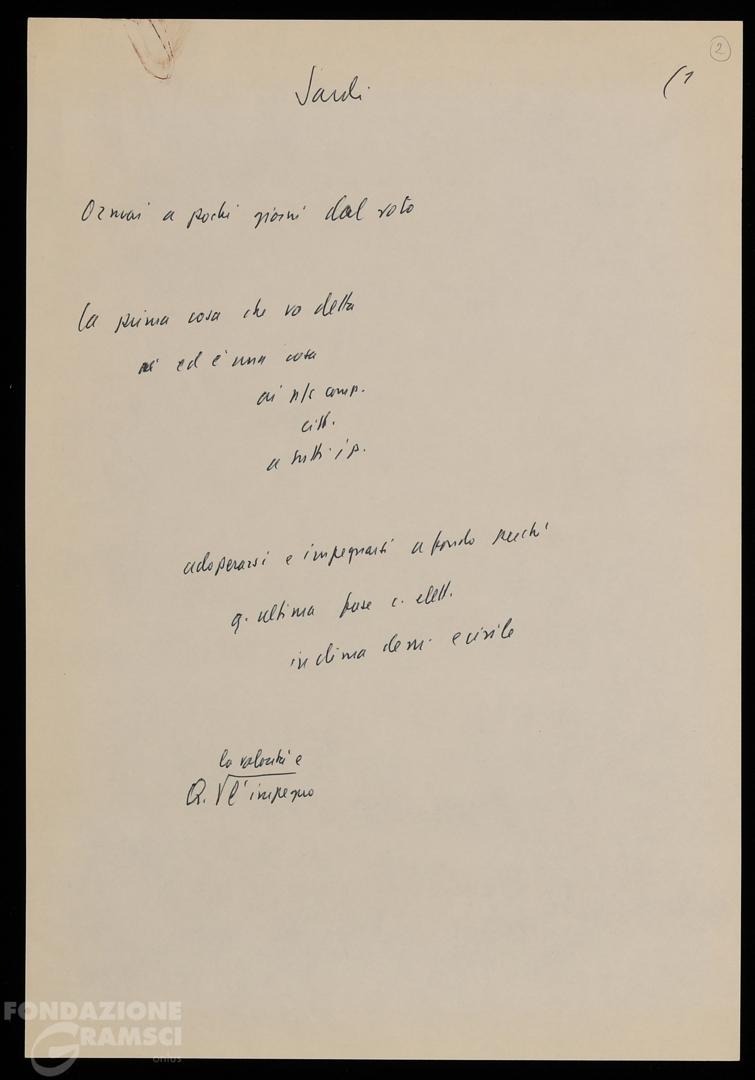 2
Sardi
(1
Ormai a pochi giorni dal voto
la prima cosa che va detta
ed è una cosa
ai n/i comp.
citt.
a tutti i p.
adoperarsi e impegnarsi a fondo perché
q. ultima fase c. elett.
in clima dem. e civile
la volontà e
Q. l'impegno
FONDAZIONE
GRAMSCI
onlus